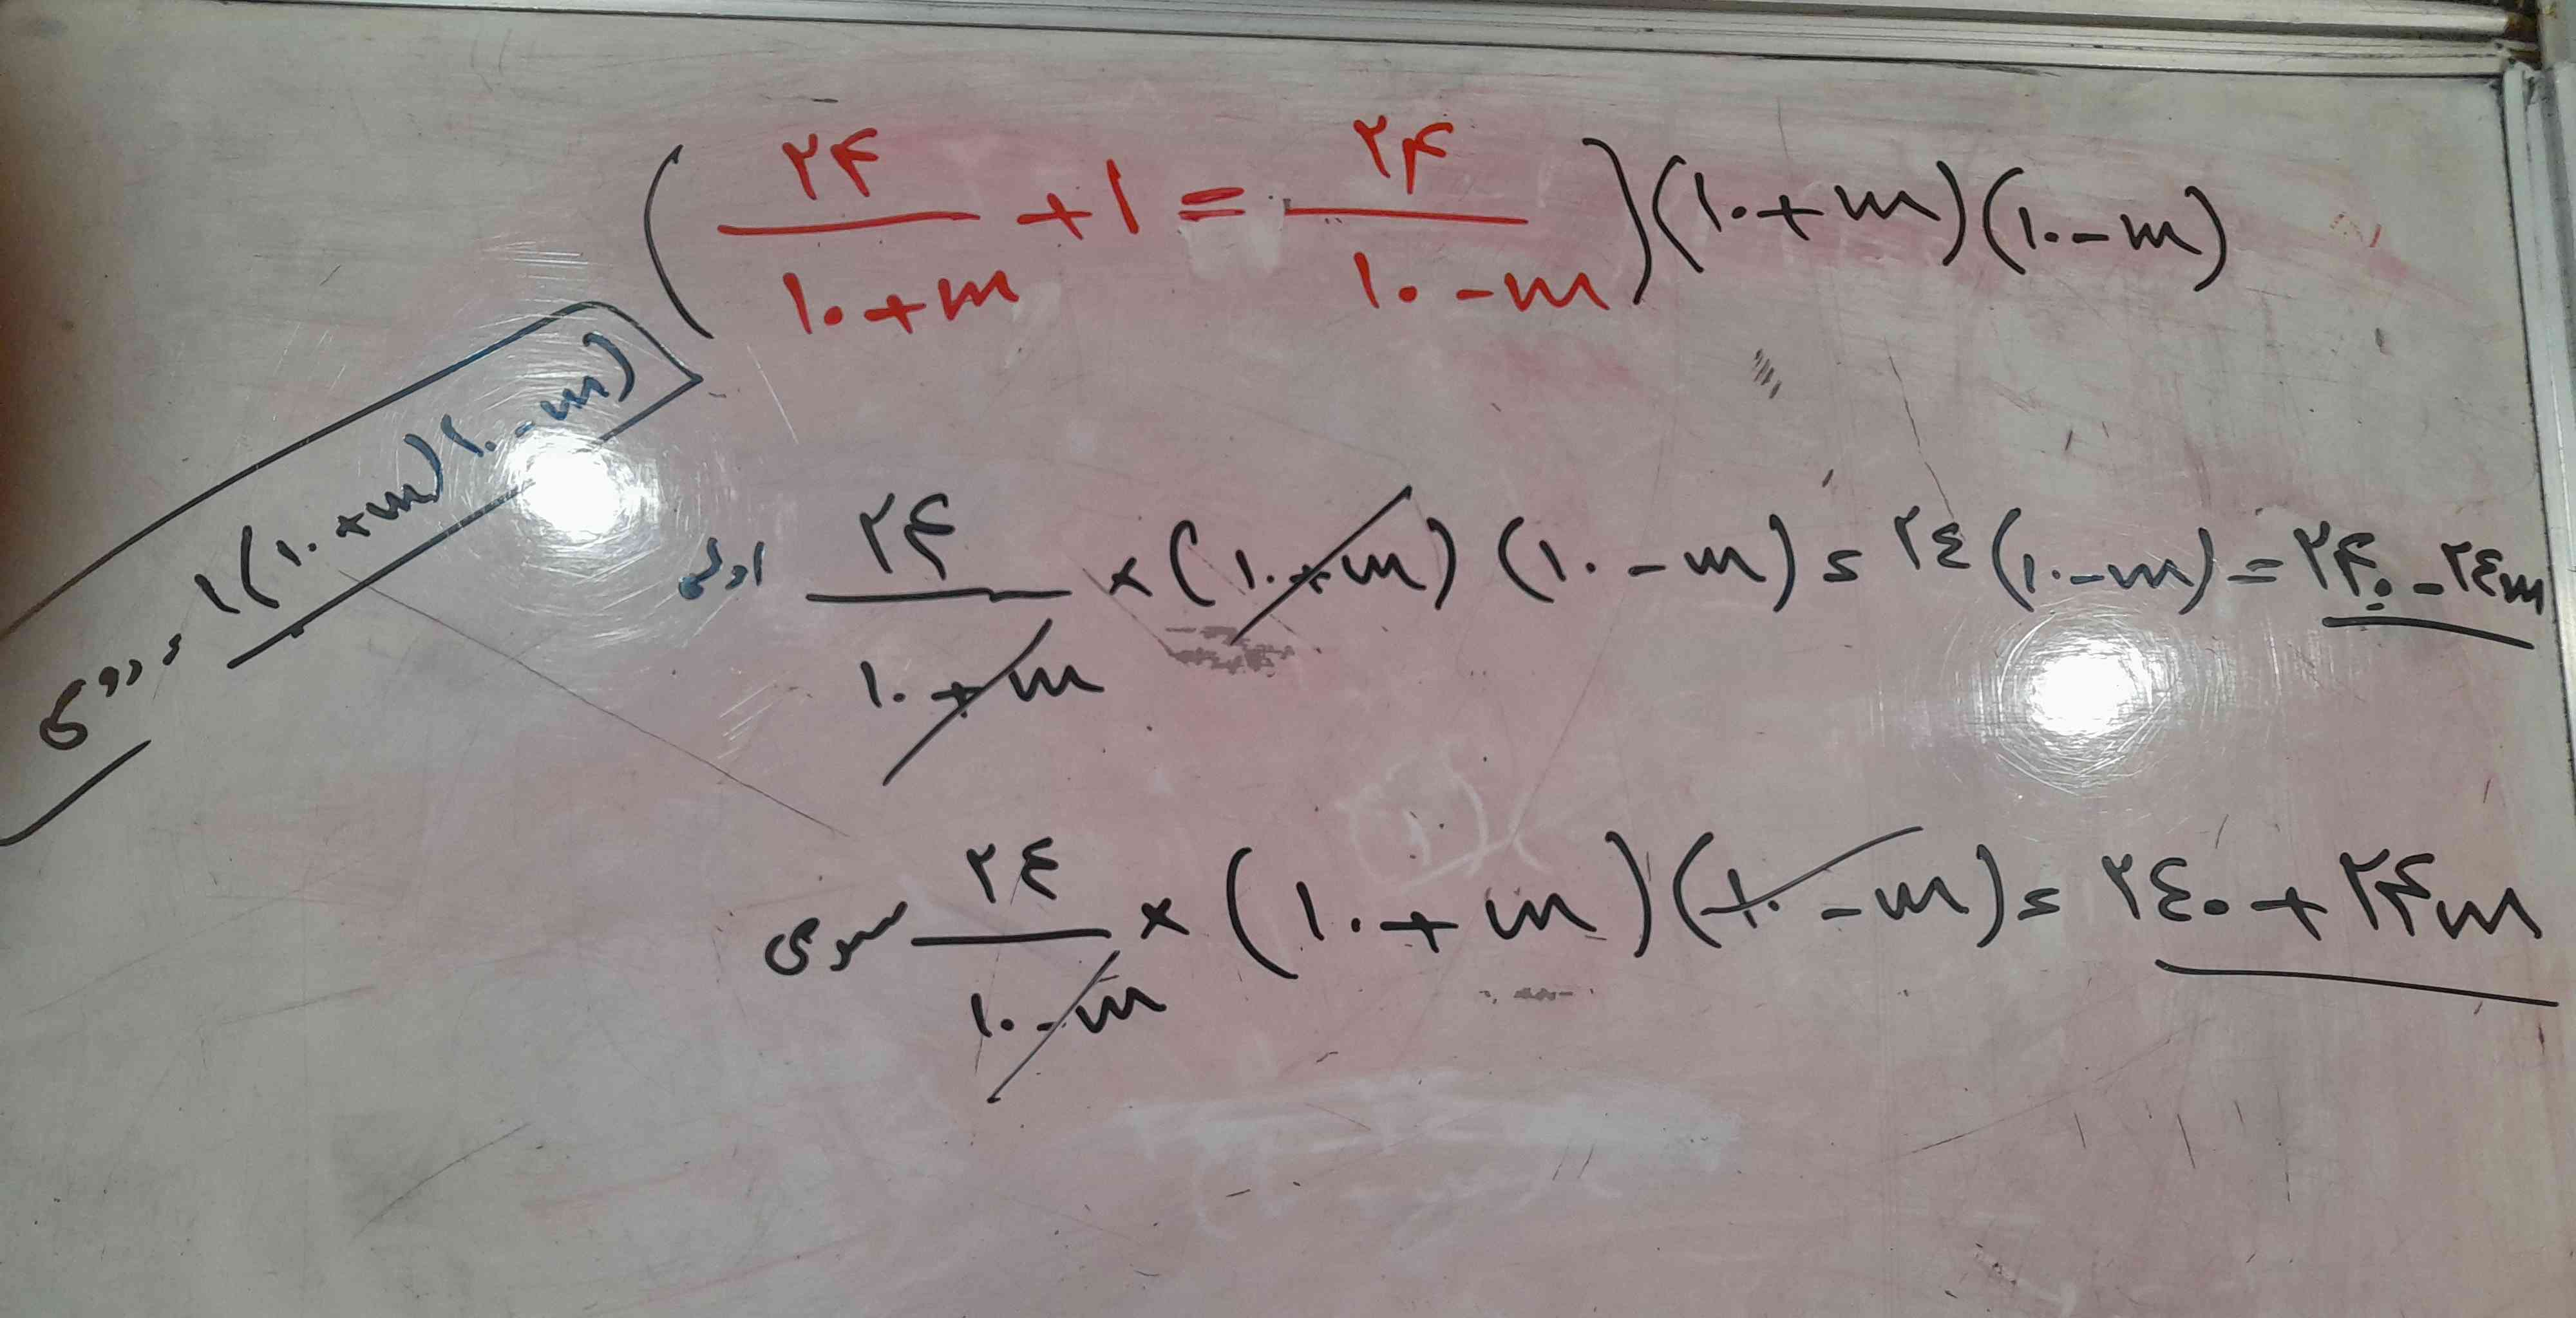 (۲۴/۱۰+m + ۱ = ۲۴/۱۰-m)(۱۰+m)(۱۰-m)
دومی ۱(۱۰+m)(۱۰-m)
اولی ۲۴/۱۰+m × (۱۰+m)(۱۰-m) = ۲٤(۱۰-m) = ۲۴۰-۲٤m
سومی ۲٤/۱۰-m × (۱۰+m)(۱۰-m) = ۲٤۰+۲۴m